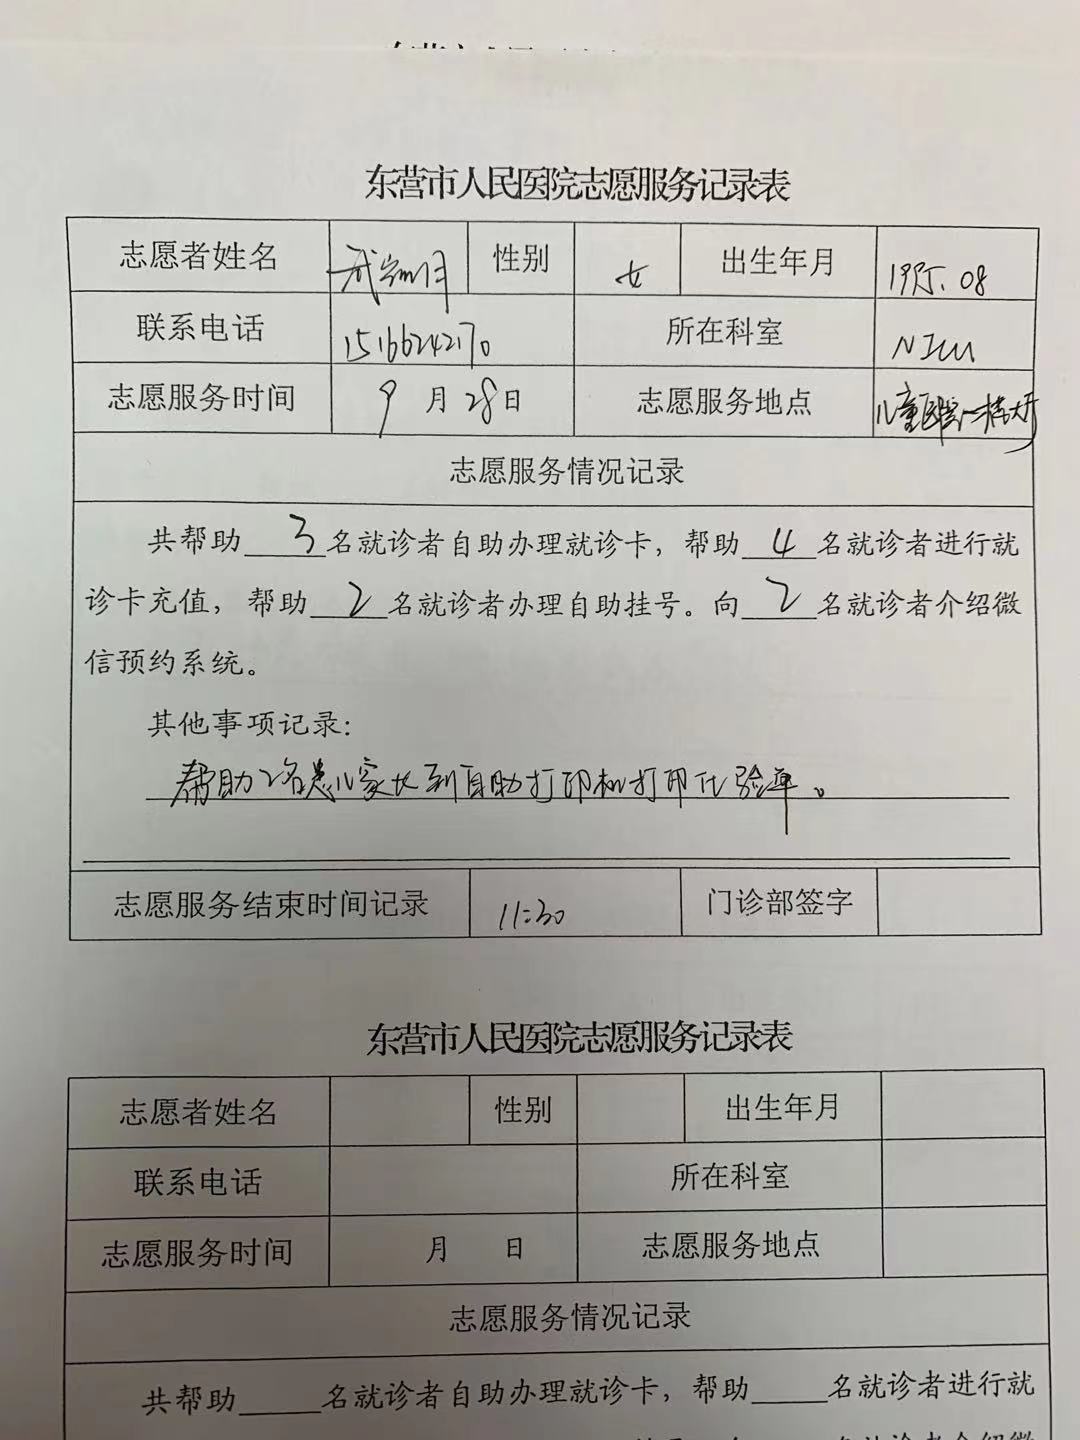 东营市人民医院志愿服务记录表
志愿者姓名 性别 女 出生年月 1995.08
联系电话 15166242170 所在科室 NICU
志愿服务时间 9月28日 志愿服务地点 儿童医院一楼大厅
志愿服务情况记录
共帮助3名就诊者自助办理就诊卡，帮助4名就诊者进行就
诊卡充值，帮助2名就诊者办理自助挂号。向2名就诊者介绍微
信预约系统。
其他事项记录：
帮助2名患儿家长到自助打印机打印化验单。
志愿服务结束时间记录 11:30 门诊部签字
东营市人民医院志愿服务记录表
志愿者姓名 性别 出生年月
联系电话 所在科室
志愿服务时间 月 日 志愿服务地点
志愿服务情况记录
共帮助____名就诊者自助办理就诊卡，帮助____名就诊者进行就